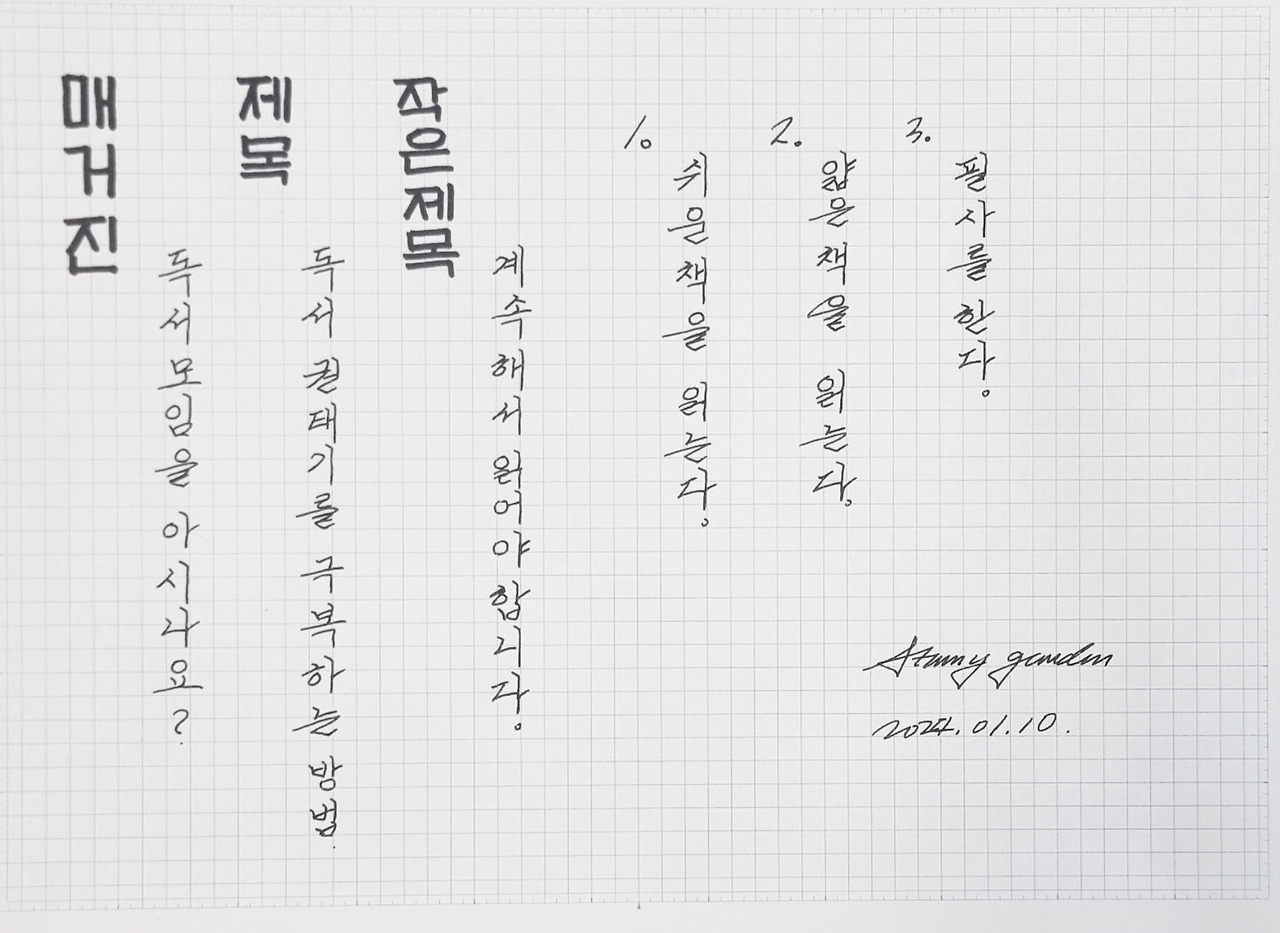 매거진
독서모임을 아시나요?
제목
독서 권태기를 극복하는 방법.
작은제목
계속해서 읽어야합니다.
1.
쉬운책을 읽는다.
2.
얇은책을 읽는다.
3.
필사를한다.
2024.01.10.